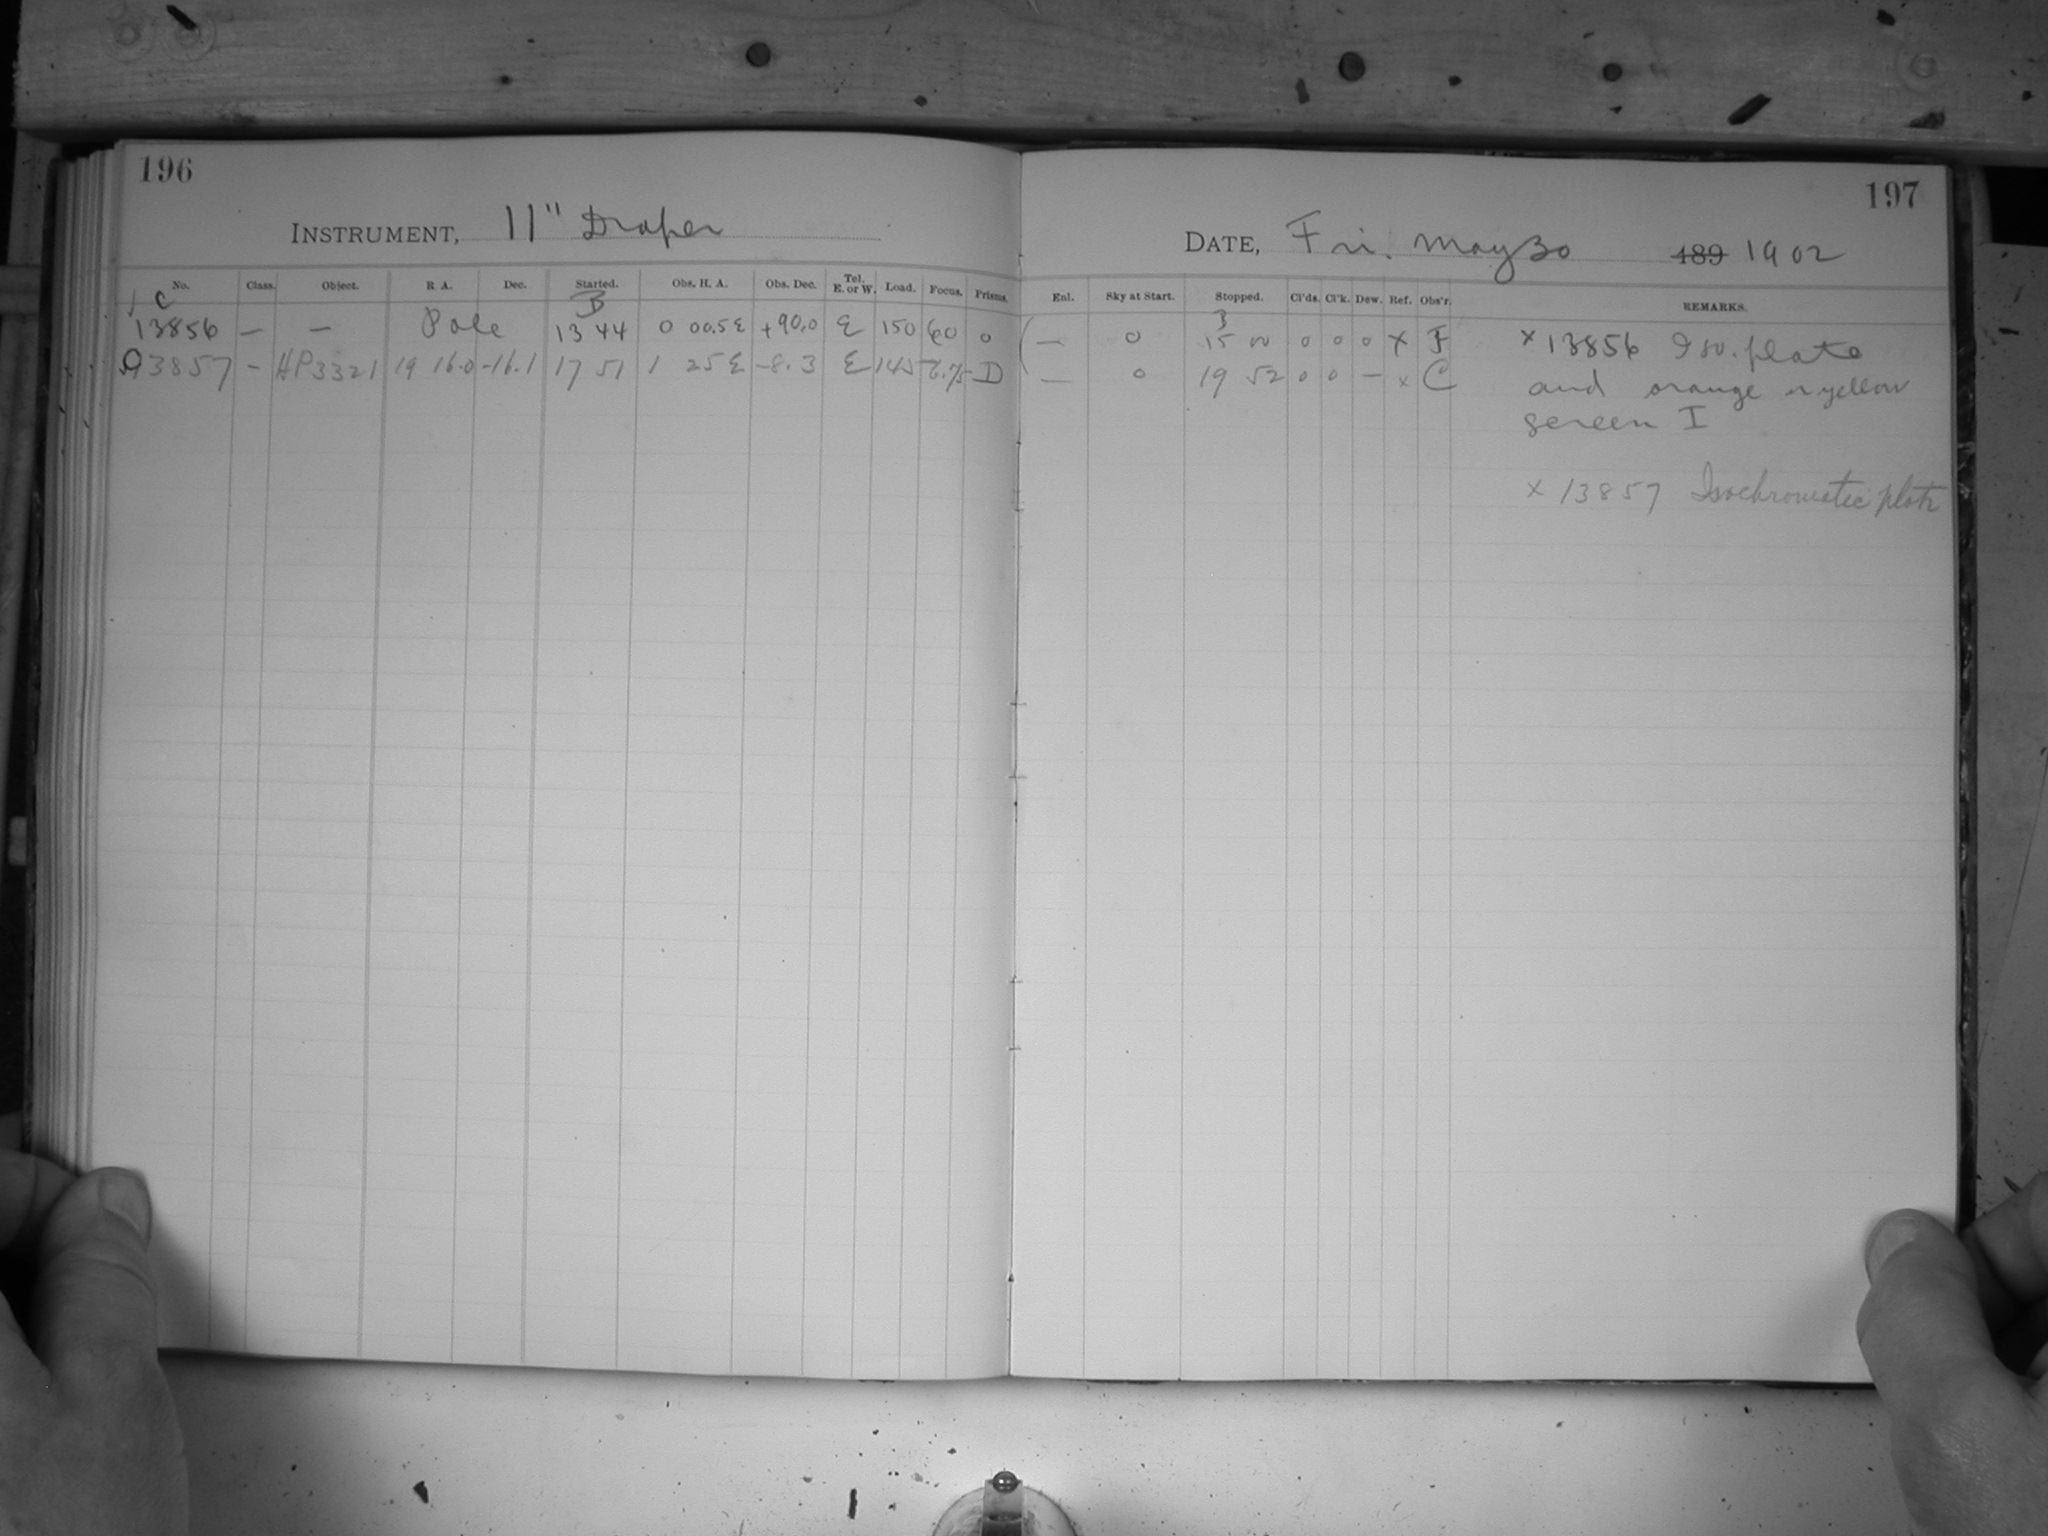 196
INSTRUMENT, 11" Draper
No. Class. Object. R A. Dec. Started. Obs. H. A. Obs. Dec. Tel. E. or W. Load. Focus. Prisms.
C B
13856 — — Pole 13 44 0 00.5 E +90.0 E 150 60 0
13857 — HP3321 19 16.0 -16.1 17 51 1 25 E -8.3 E 145 D
197
DATE, Fri. May 30 189 1902
Enl. Sky at Start. Stopped. Cl'ds. Cl'k. Dew. Ref. Obs'r. REMARKS.
— 0 15 00 0 0 0 x F x 13856 Iso. plate
— 0 19 52 0 0 — x C and orange yellow
screen I
x 13857 Isochromatic plate